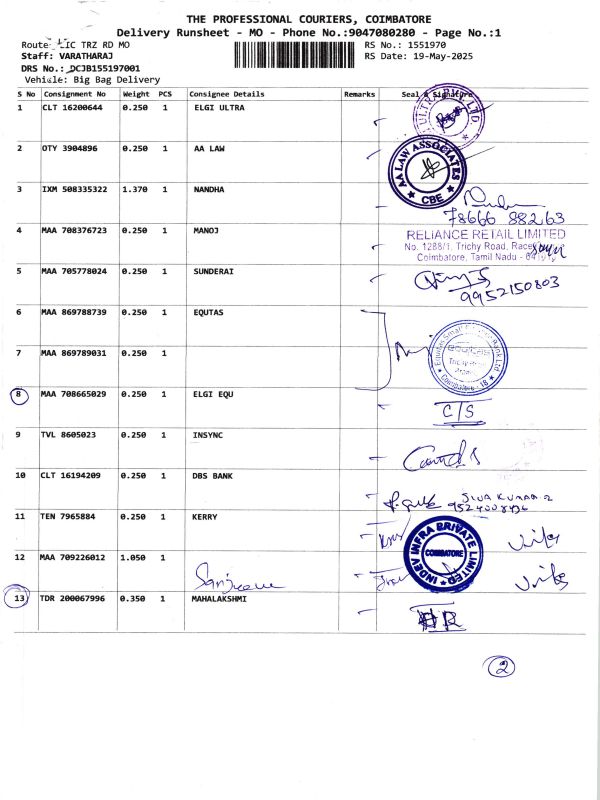 THE PROFESSIONAL COURIERS, COIMBATORE
Delivery Runsheet - MO - Phone No.:9047080280 - Page No.:1
Route: LIC TRZ RD MO
RS No.: 1551970
Staff: VARATHARAJ
RS Date: 19-May-2025
DRS No.: DCJB155197001
Vehicle: Big Bag Delivery
S No Consignment No Weight PCS Consignee Details Remarks Seal & Signature
1 CLT 16200644 0.250 1 ELGI ULTRA
ULTRA LTD.
2 OTY 3904896 0.250 1 AA LAW
AA LAW ASSOCIATES
CBE
3 IXM 508335322 1.370 1 NANDHA
78666 88263
4 MAA 708376723 0.250 1 MANOJ
RELIANCE RETAIL LIMITED
No. 1288/1, Trichy Road, Race
Coimbatore, Tamil Nadu -
5 MAA 705778024 0.250 1 SUNDERAI
9952150803
6 MAA 869788739 0.250 1 EQUTAS
Equitas Small Bank Ltd
equitas
Coimbatore - 18
7 MAA 869789031 0.250 1
8 MAA 708665029 0.250 1 ELGI EQU
C/S
9 TVL 8605023 0.250 1 INSYNC
10 CLT 16194209 0.250 1 DBS BANK
SIVA KUMAR
11 TEN 7965884 0.250 1 KERRY
INDEV INFRA PRIVATE LIMITED
COIMBATORE
12 MAA 709226012 1.050 1
13 TDR 200067996 0.350 1 MAHALAKSHMI
2